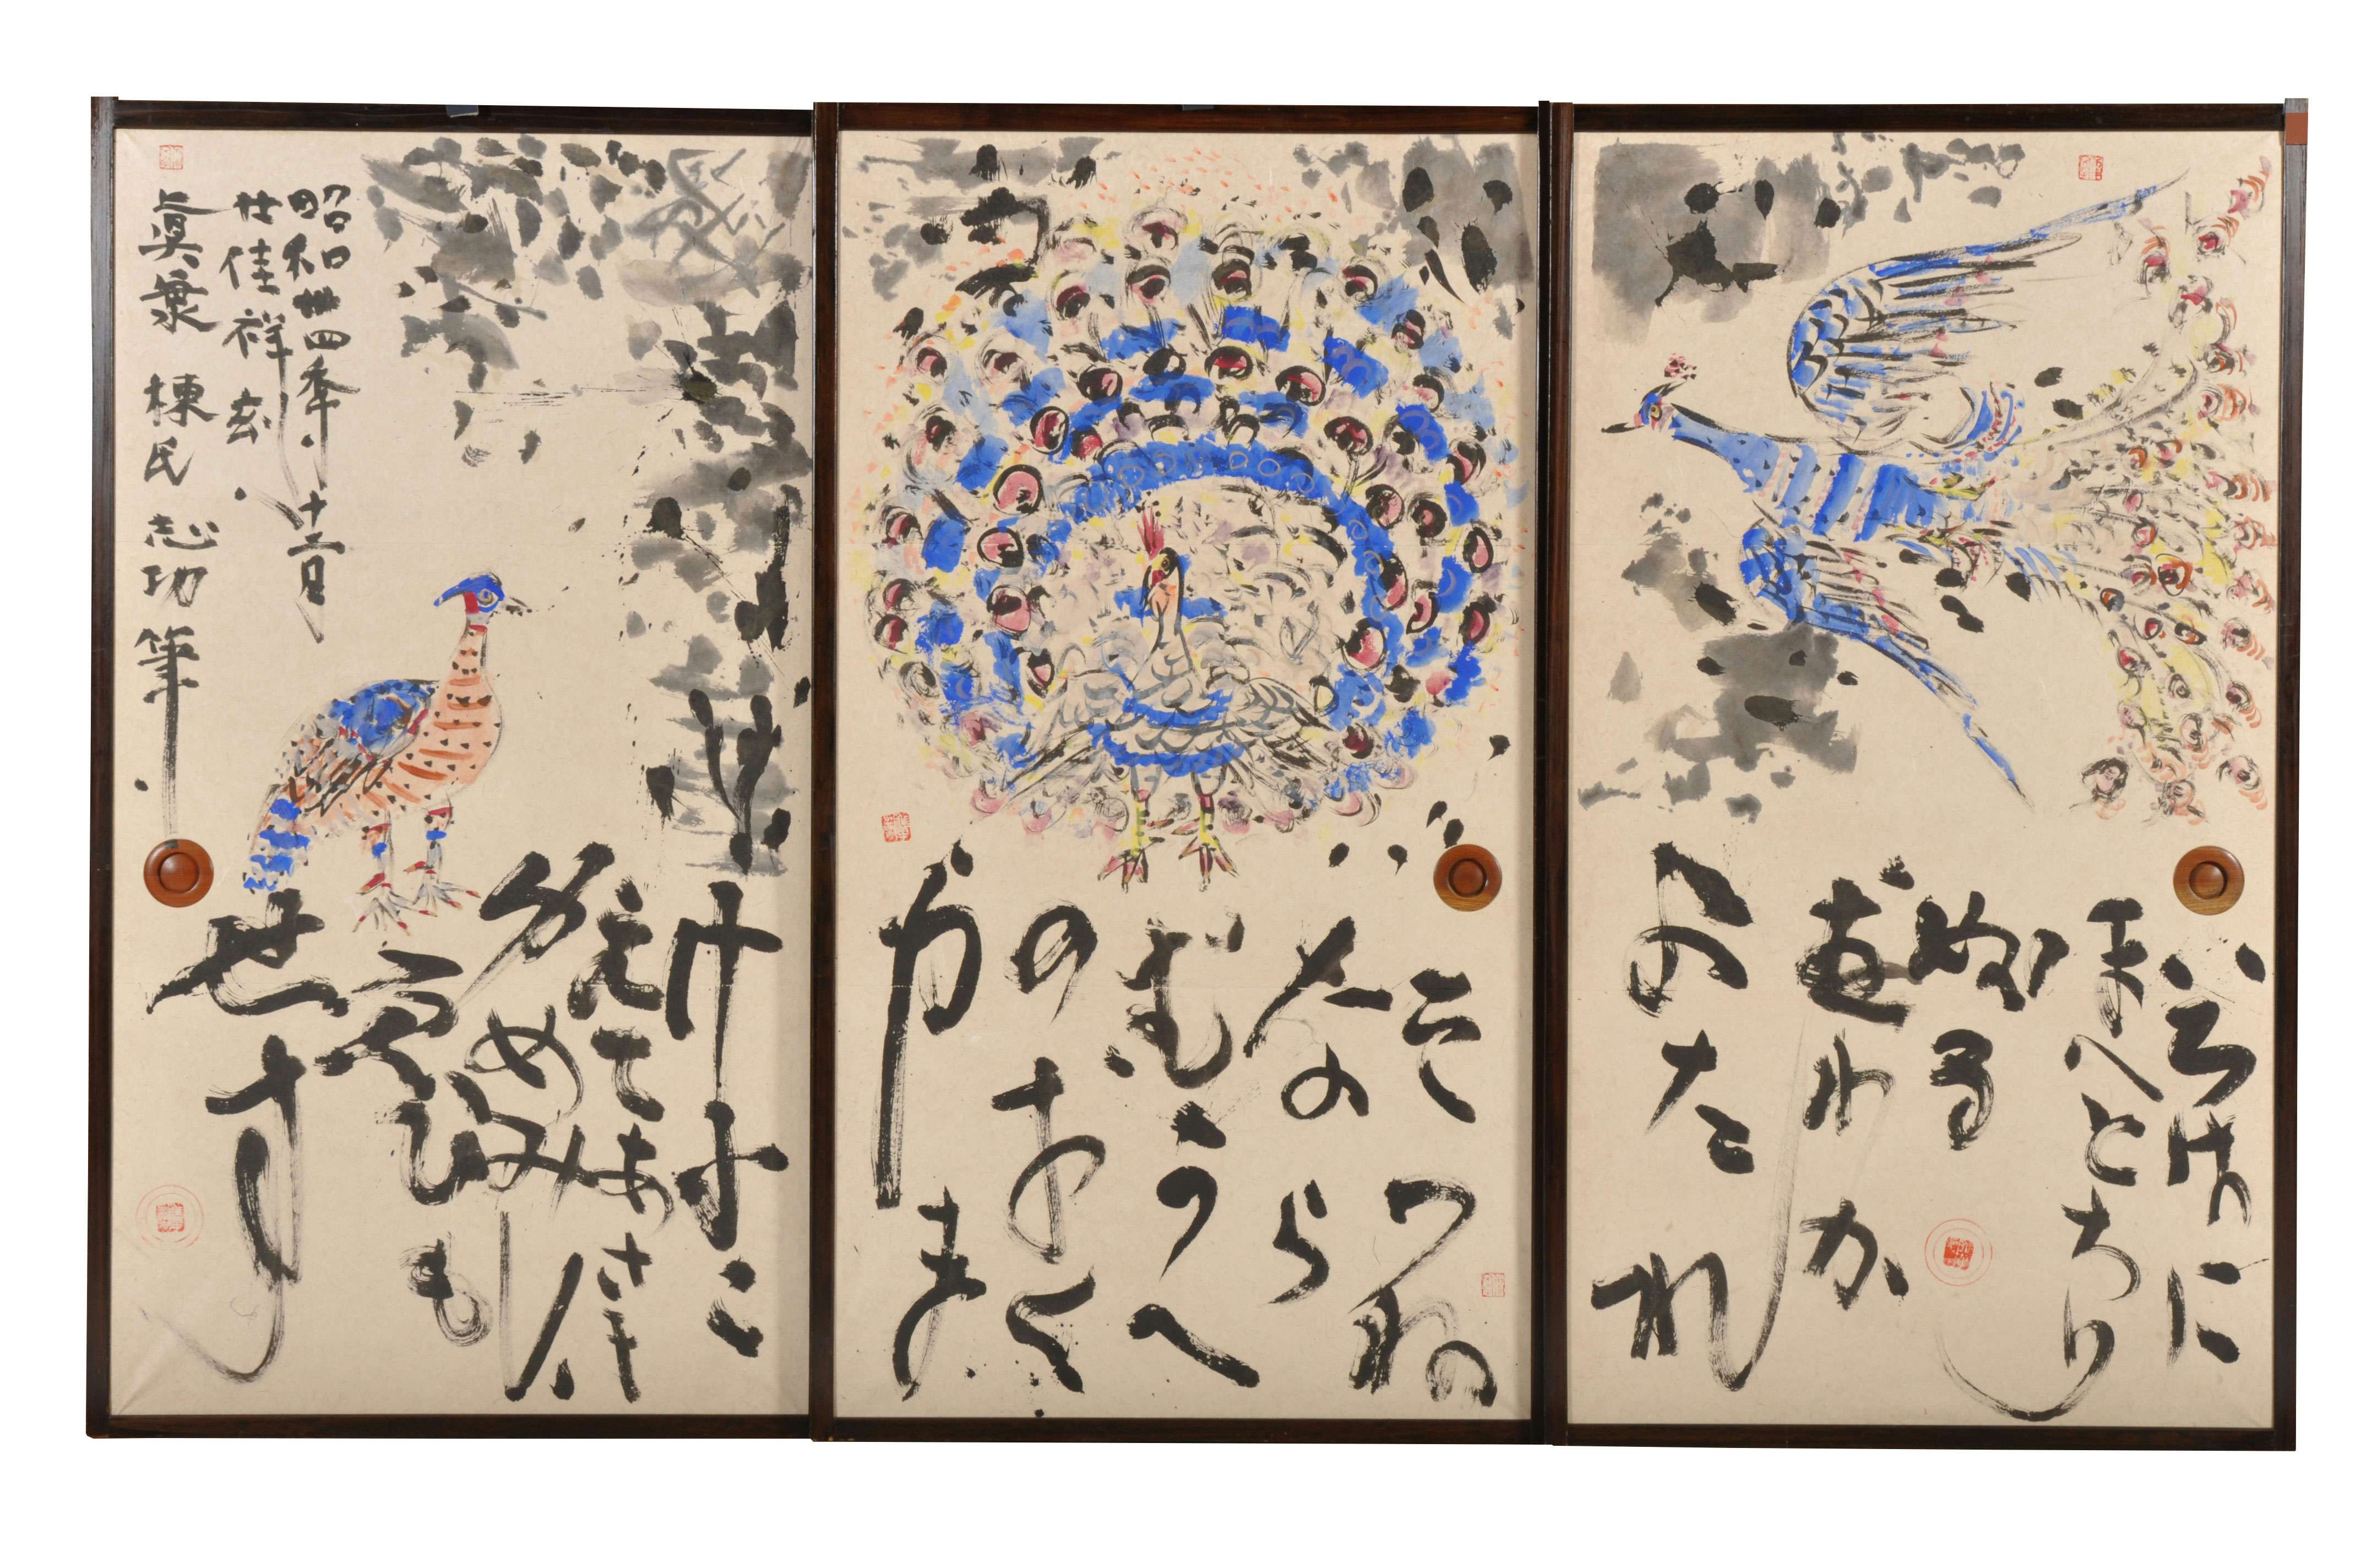 いろはに
ほへとちり
ぬる
をわか
よたれ
そつね
なら
むう
のおく
やま
けふこ
えてあさき
ゆめみし
ゑひも
せす
昭和卅四年十二月
廿佳祥
棟方志功筆